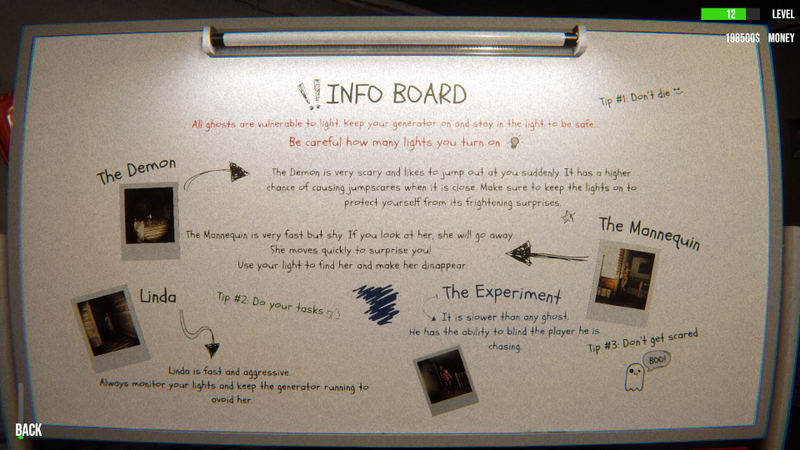 12 LEVEL
198500$ MONEY
INFO BOARD
Tip #1: Don't die
All ghosts are vulnerable to light. Keep your generator on and stay in the light to be safe.
Be careful how many lights you turn on
The Demon
The Demon is very scary and likes to jump out at you suddenly. It has a higher
chance of causing jumpscares when it is close. Make sure to keep the lights on to
protect yourself from its frightening surprises.
The Mannequin
The Mannequin is very fast but shy. If you look at her, she will go away.
She moves quickly to surprise you!
Use your light to find her and make her disappear
Linda
Tip #2: Do your tasks
The Experiment
It is slower than any ghost.
He has the ability to blind the player he is
chasing.
Tip #3: Don't get scared
BOO!
Linda is fast and aggressive.
Always monitor your lights and keep the generator running to
avoid her.
BACK